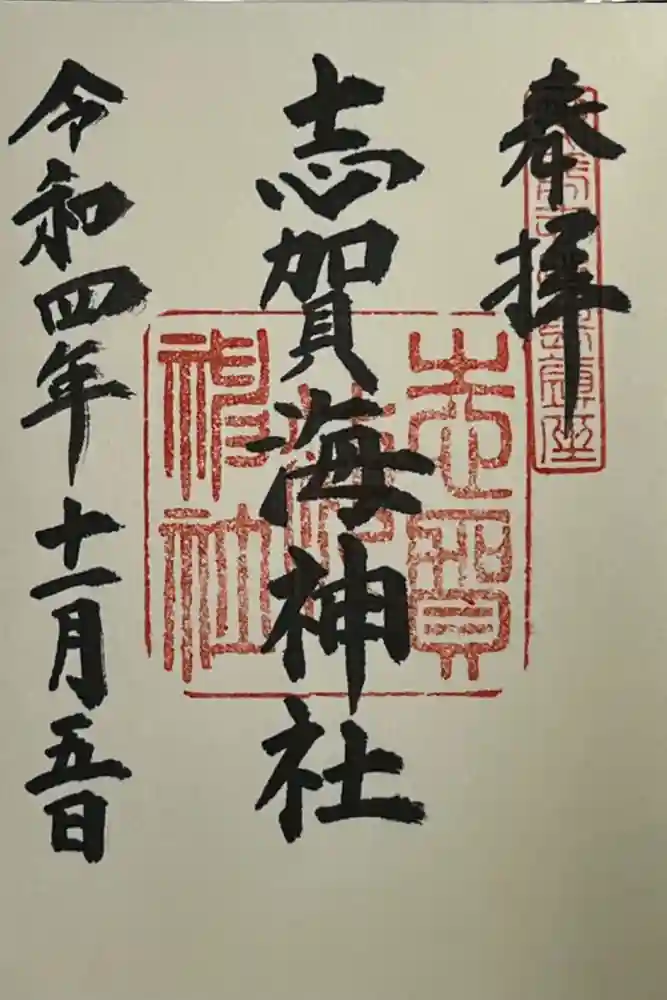 奉拝
志賀海神社
令和四年十一月五日
志賀海神社